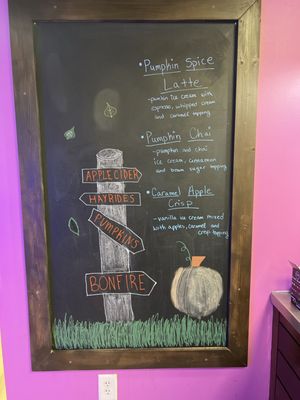 Pumpkin Spice
Latte
- pumkin ice cream with
espresso, whipped cream
and caramel topping
Pumpkin Chai
- pumpkin and chai
ice cream, cinnamon
and brown sugar topping
Caramel Apple
Crisp
- vanilla ice cream mixed
with apples, caramel and
crisp topping
APPLE CIDER
HAYRIDES
PUMPKINS
BONFIRE